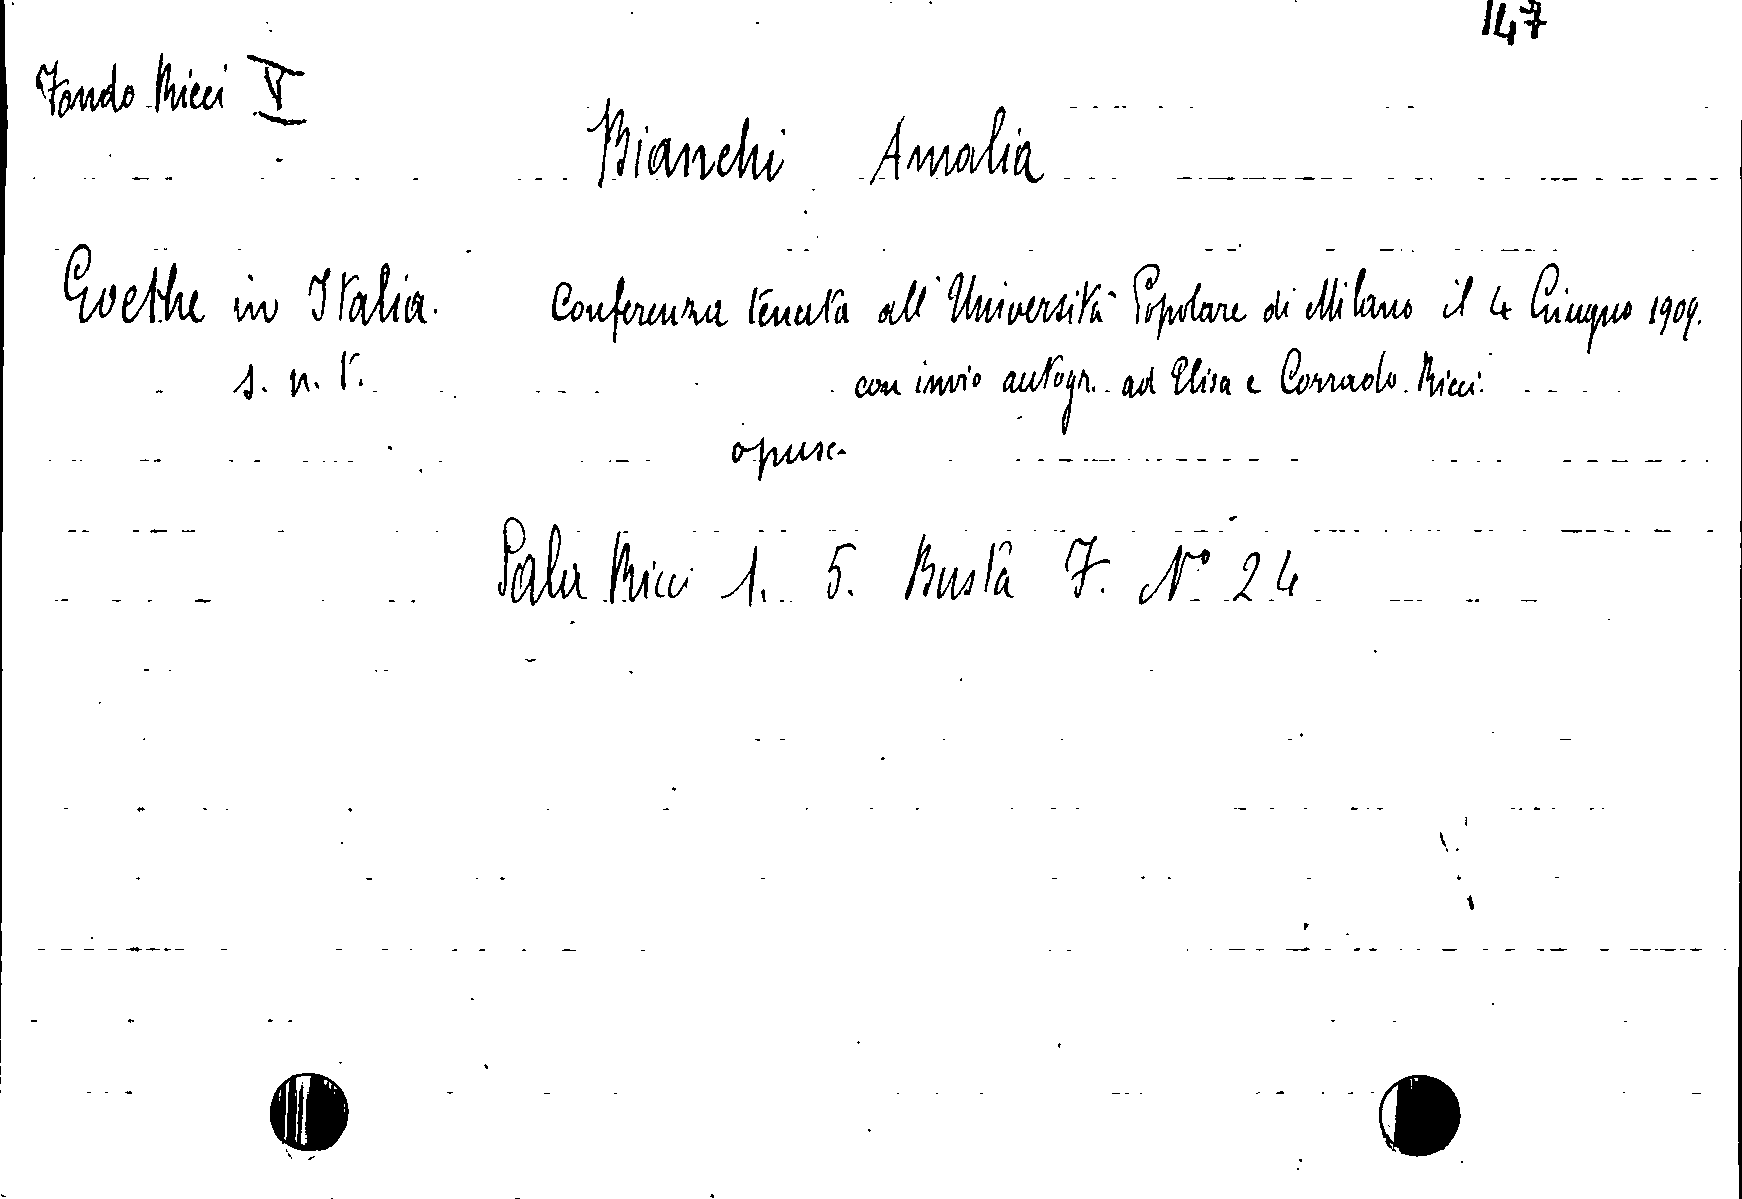 147
Fondo Ricci V
Bianchi Amalia
Goethe in Italia. Conferenza tenuta all'Università Popolare di Milano il 4 Giugno 1909.
s. n. t. con invio autogr. ad Elisa e Corrado Ricci.
opusc.
Sala Ricci 1. 5. Busta F. N° 24